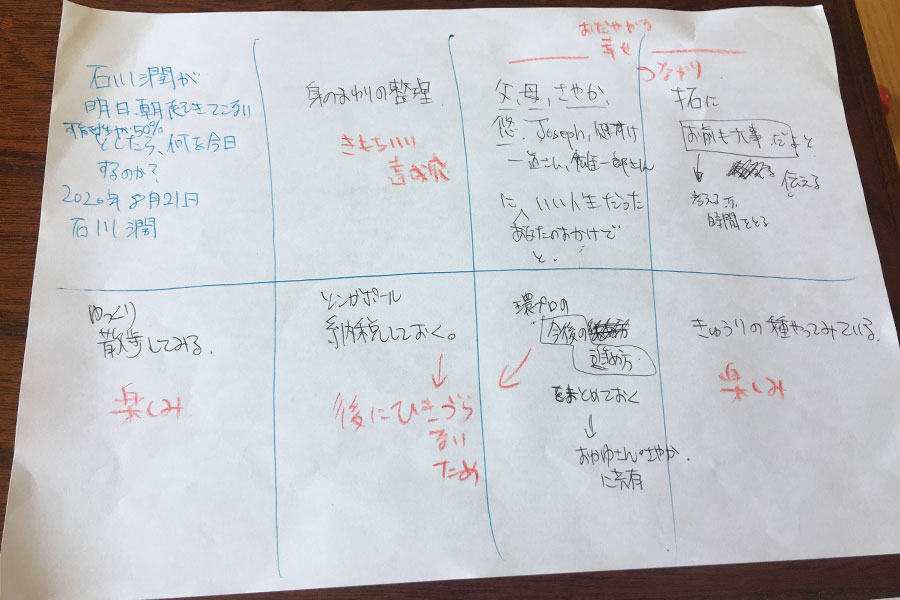 石川潤が
明日、朝起きてこない
可能性が50%
としたら、何を今日
するのか？
2020年8月21日
石川潤
身のまわりの整理.
きもちいい
達成感
おだやかな
幸せ
父、母、さやか、
悠、Joseph,
に、いい人生だった
あなたのおかげで
と.
つながり
拓に
お前も大事だよと
伝える
↓
考える
時間をとる
ゆっくり
散歩してみる.
楽しみ
シンガポール
納税しておく。
↓
後にひきづら
ない
ため
環プロの
今後の
進め方
まとめておく
↓
さやか.
に共有
きゅうりの種やってみている.
楽しみ